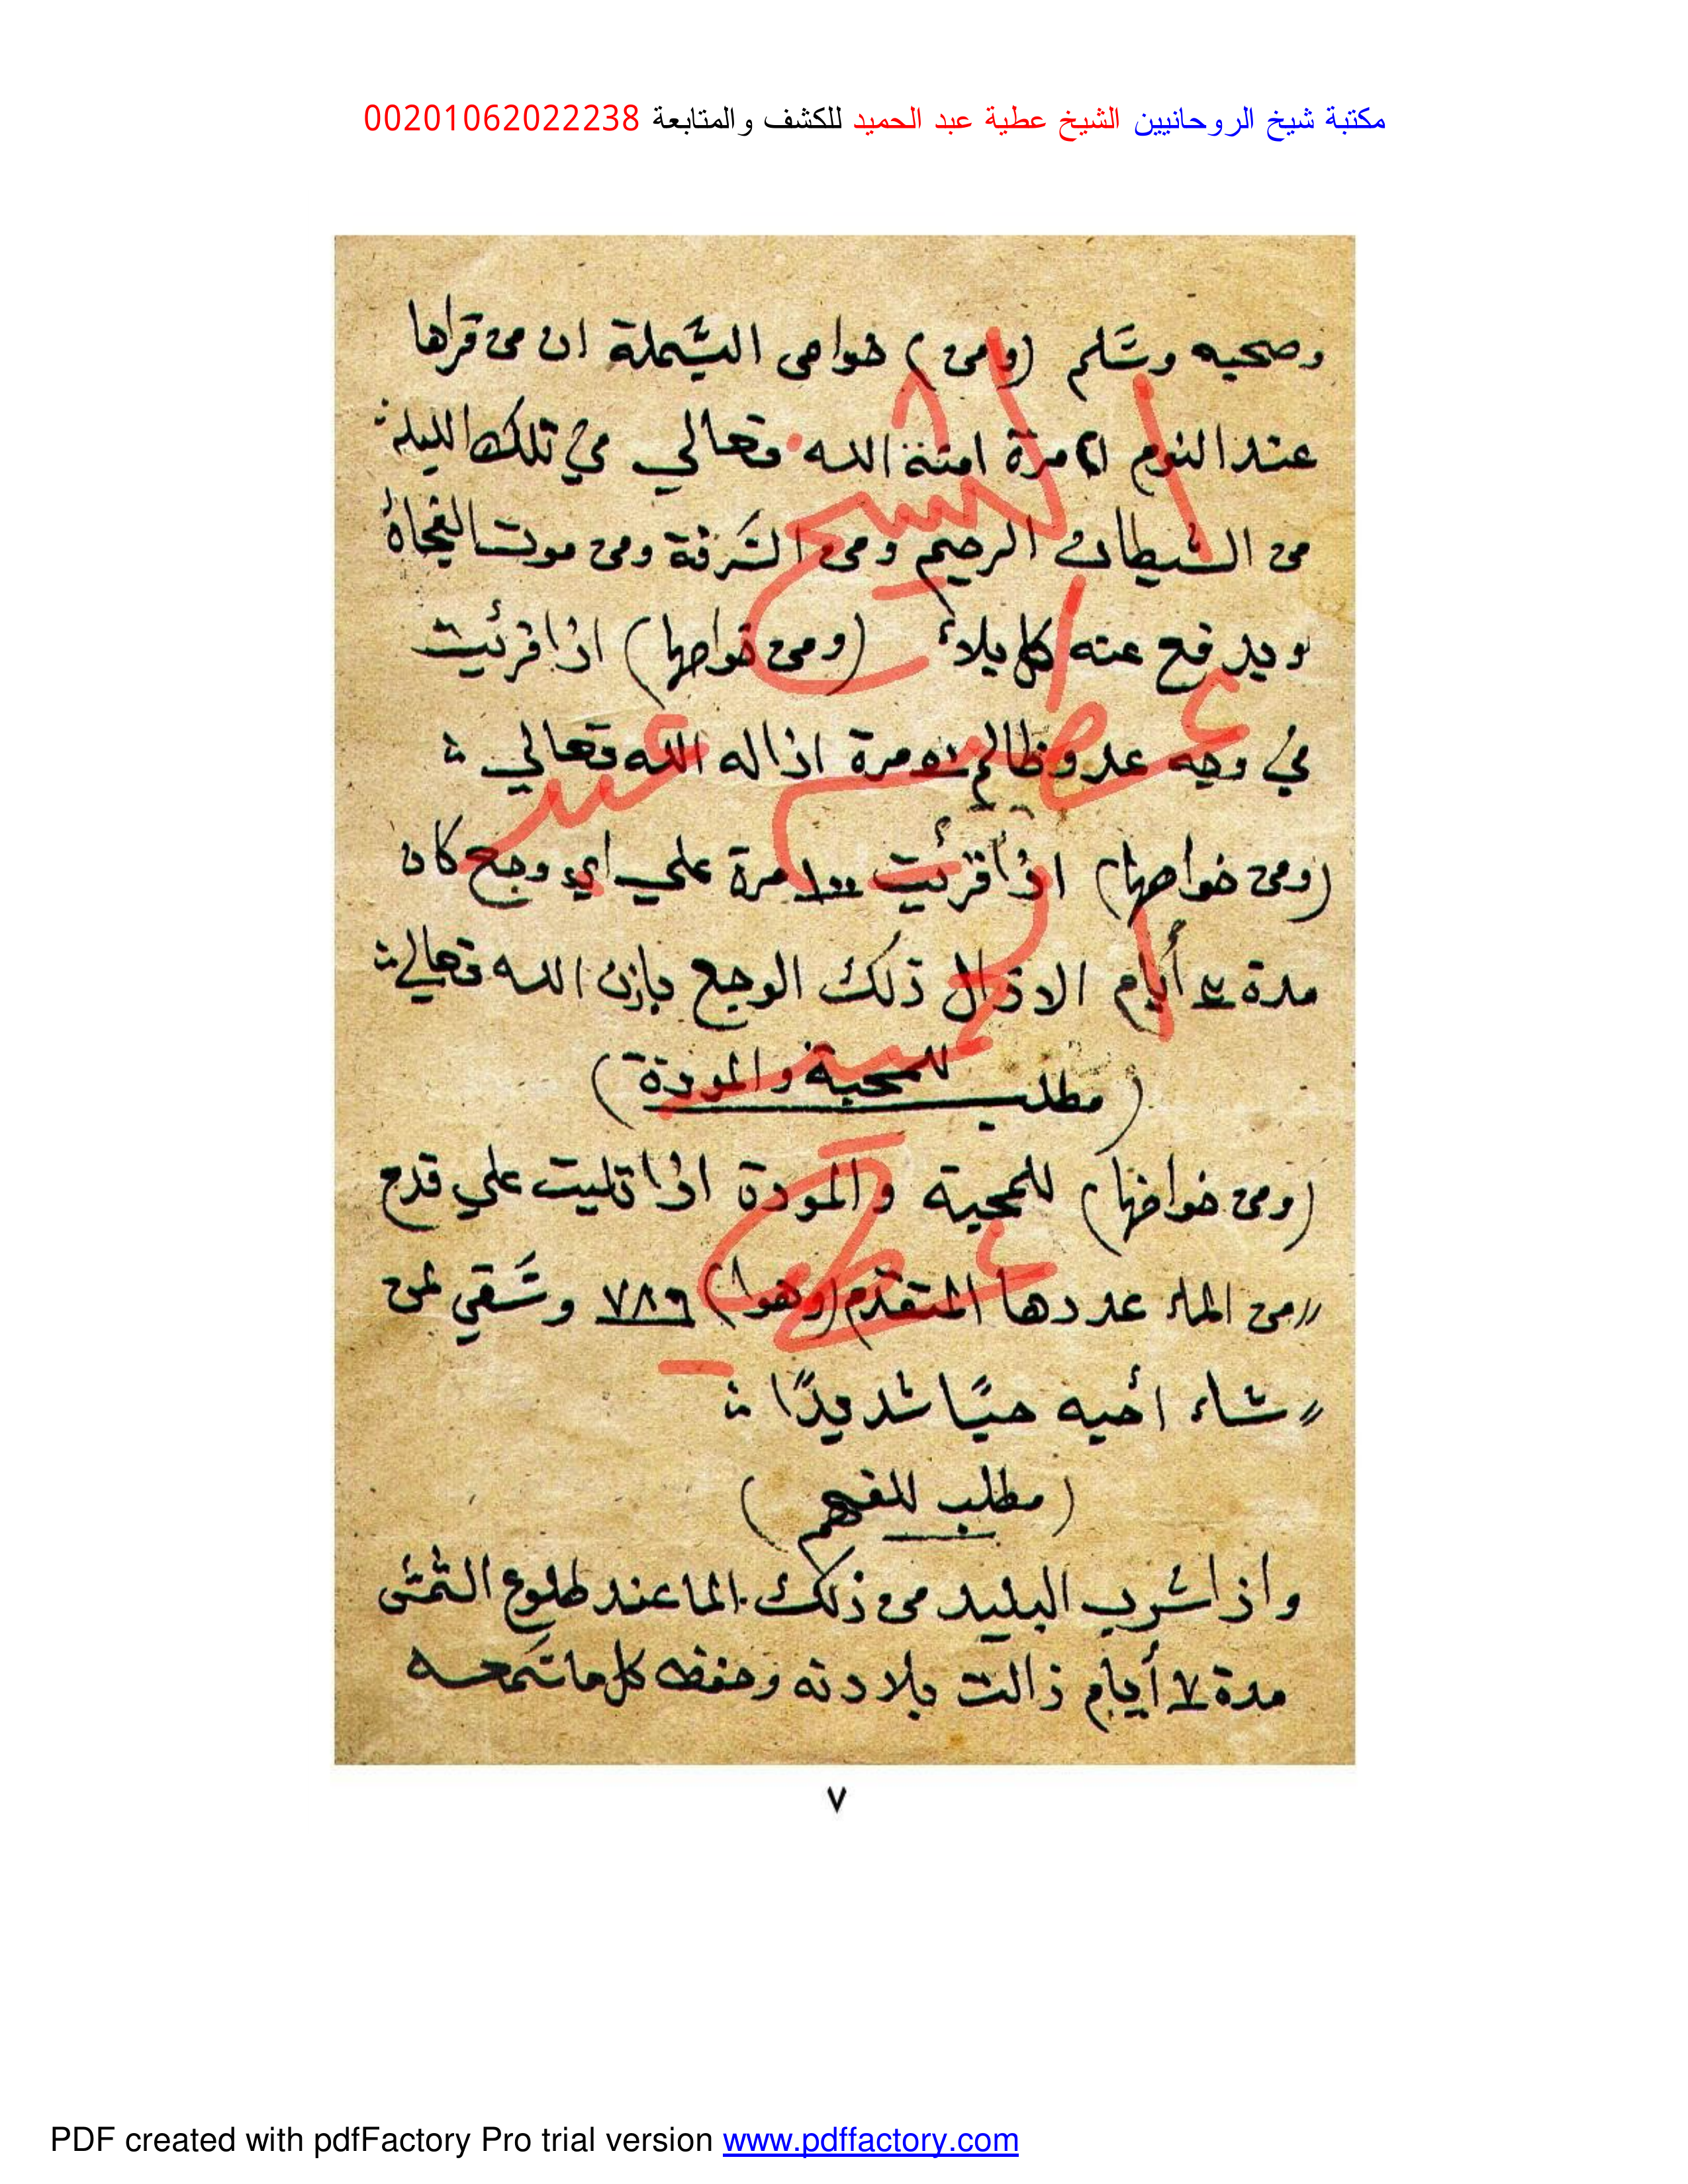 مكتبة شيخ الروحانيين الشيخ عطية عبد الحميد للكشف والمتابعة 00201062022238
وصحبه وسَلم (ومن) خواص البسَملة ان من قراها
عند النوم ٢١ مرة امنه الله تعالي في تلك الليلة
من الشيطان الرجيم ومن السَرقة ومن موت الفجاة
ويدفع عنه كل بلاء (ومن خواصها) اذا قرئت
في وجه عدو ظالم ٥٠ مرة اذاله الله تعالي
(ومن خواصها) اذا قرئت ١٠٠ مرة علي اي وجع كان
مدة أيام الا زال ذلك الوجع باذن الله تعالي
(مطلب للمحبة والمودة)
(ومن خواصها) للمحبة والمودة اذا تليت علي قدح
من الماء عددها المتقدم (وهوا) ٧٨٦ وسَقي لمن
شاء أحبه حبًا شديدًا
(مطلب للفهم)
واذا شرب البليد من ذلك الما عند طلوع الشمس
مدة ٧ أيام زالت بلادته وحفظ كل ما سَمعه
٧
الشيخ
عطية
عبد
الحميد
عطية
PDF created with pdfFactory Pro trial version www.pdffactory.com